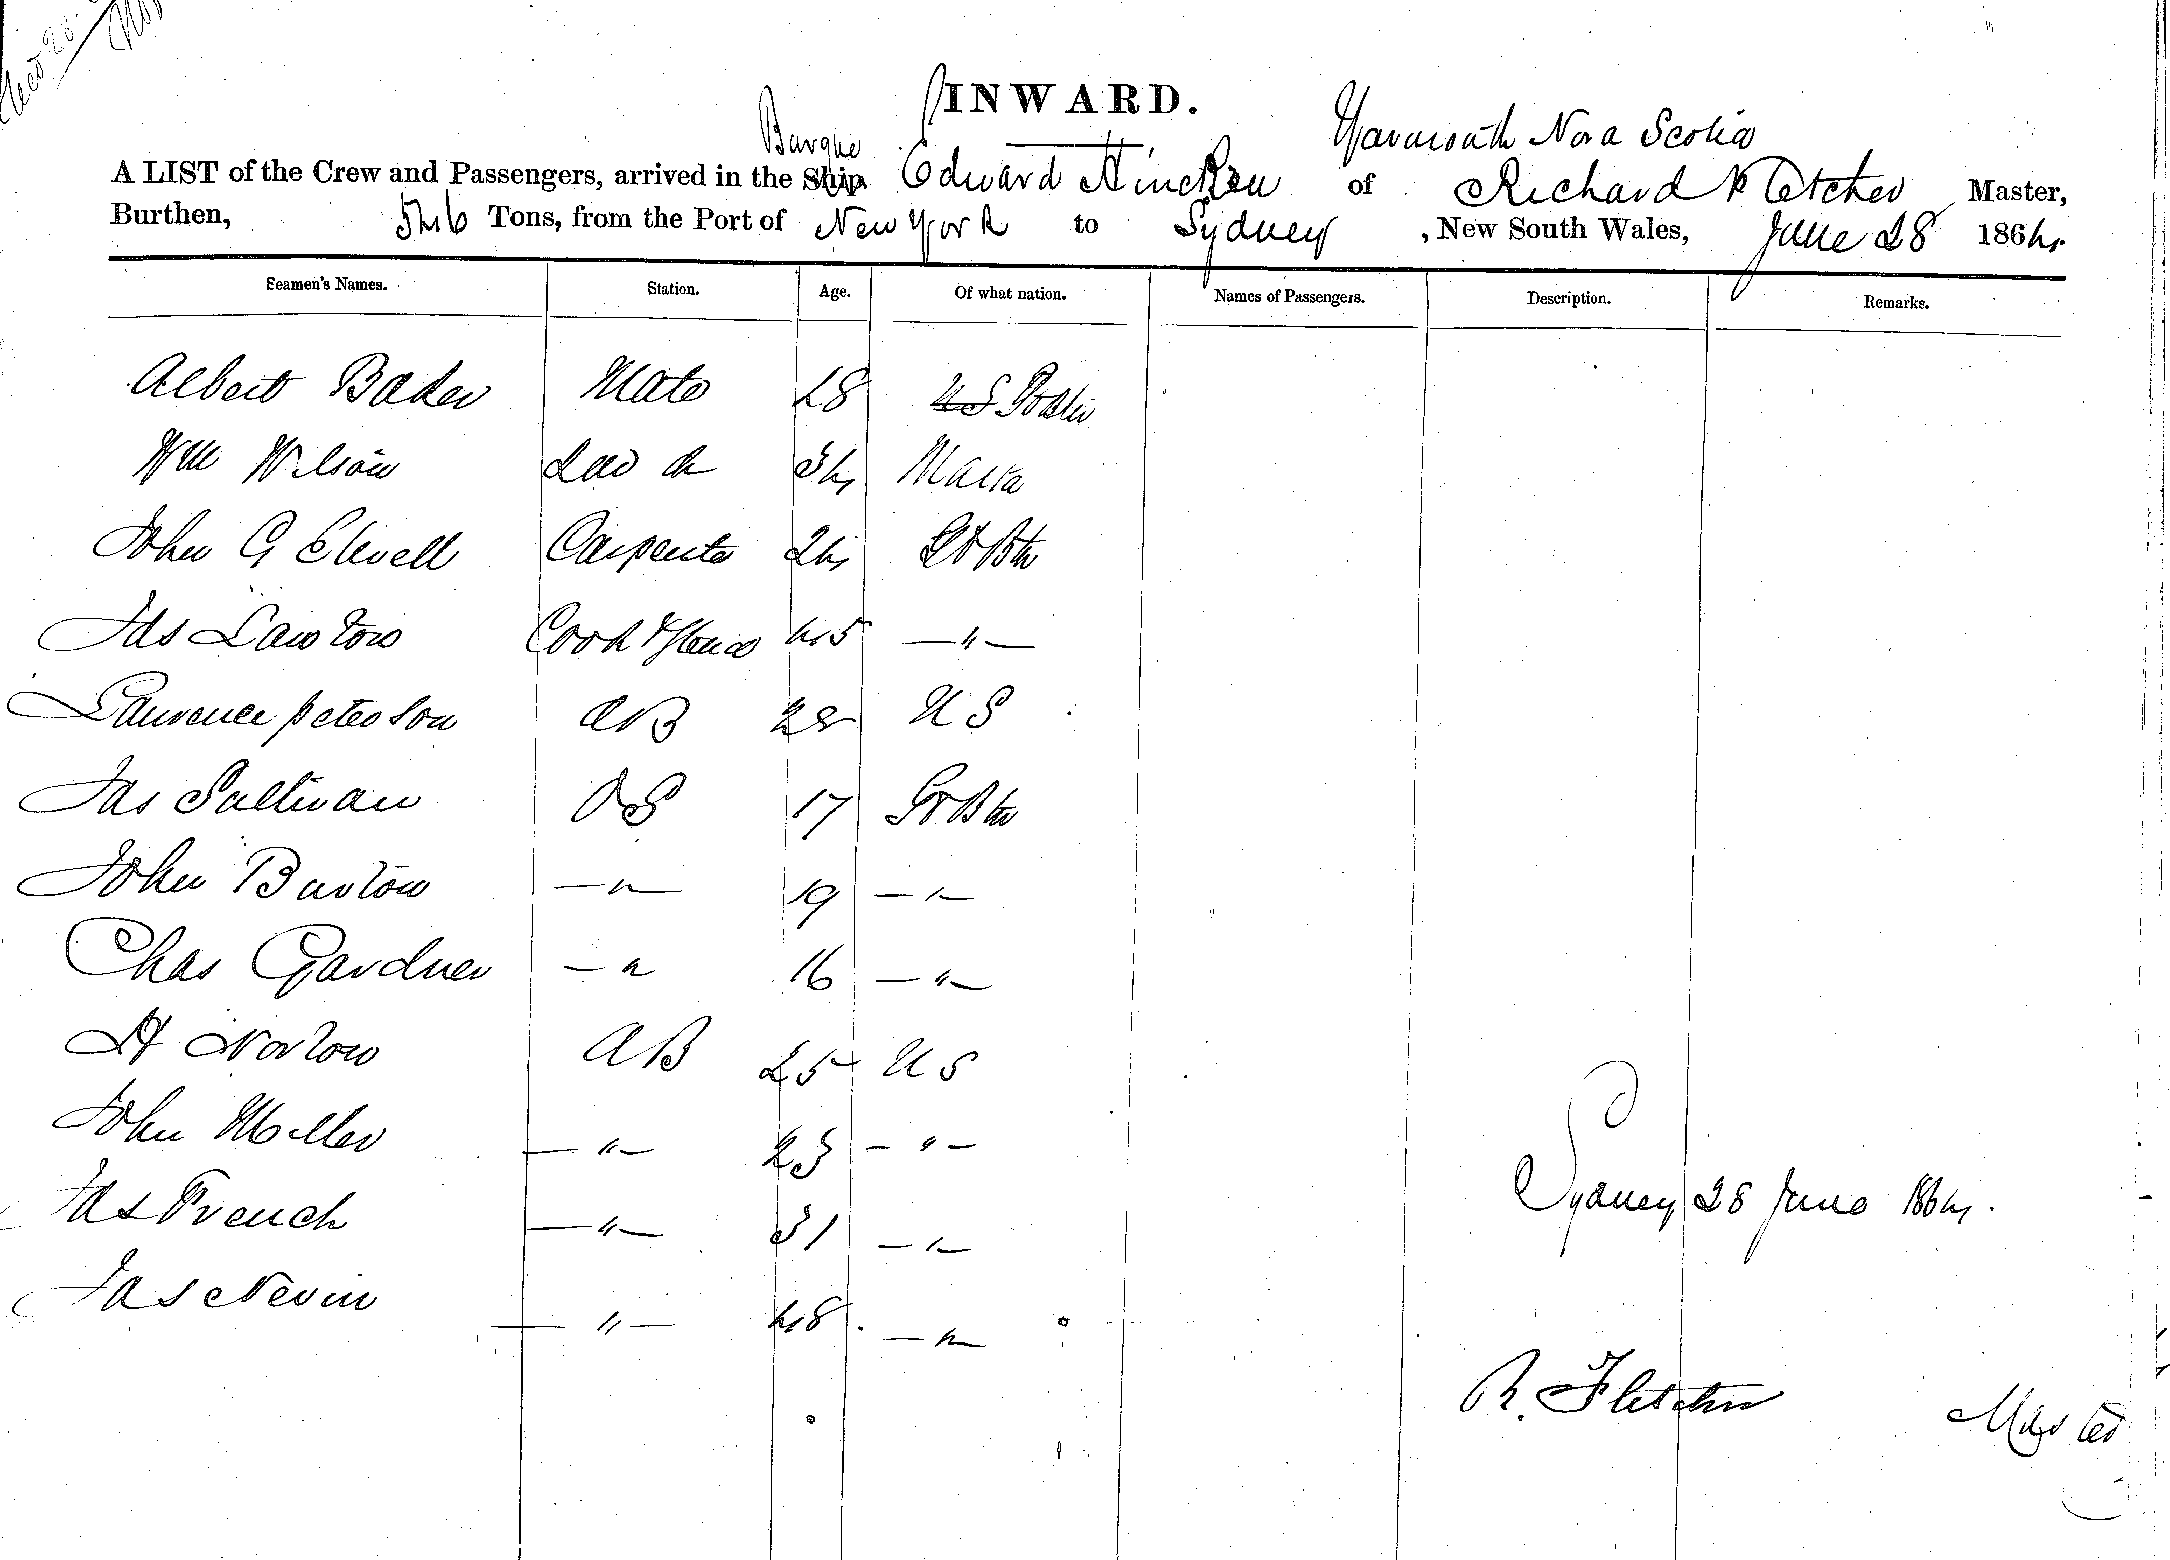 INWARD.
Barque
Yarmouth Nova Scotia
A LIST of the Crew and Passengers, arrived in the Ship Edward Hincken of Richard Fletcher Master,
Burthen, 546 Tons, from the Port of New York to Sydney, New South Wales, June 28 1864
Seamen's Names. Station. Age. Of what nation. Names of Passengers. Description. Remarks.
Albert Baker Mate 28 U S
Wm Wilson 34
John G Elwell Carpenter 24 Gt Btn
Jas Lawton Cook & Steward 45 — " —
Laurence peterson AB 28 U S
Jas Sullivan OS 17 Gt Btn
John Barton — " — 19 — " —
Chas Gardner — " 16 — " —
H Norton AB 25 U S
John Miller — " — 23 — " —
Jas French — " — 31 — " —
Sydney 28 June 1864.
Jas Nevin — " — 48 — " —
R. Fletcher Master